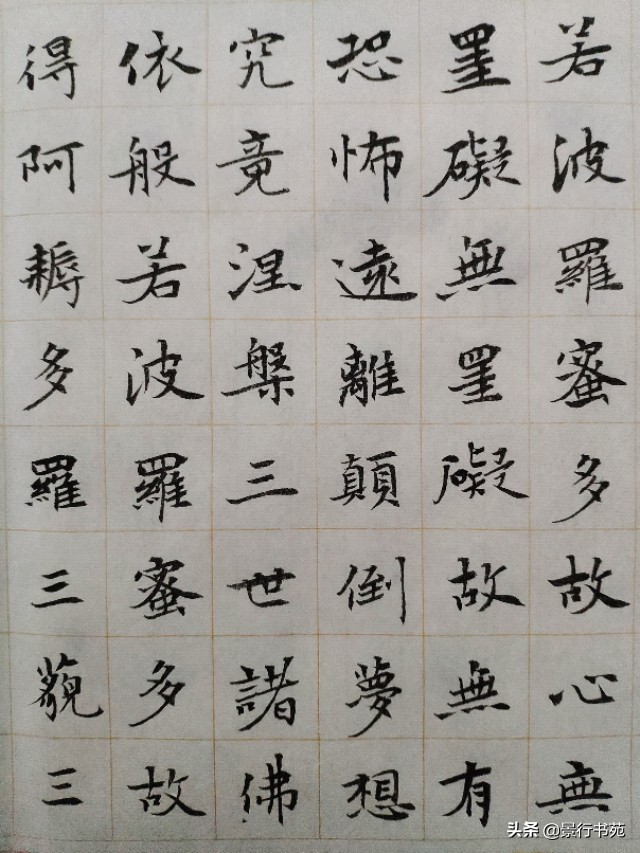 若波羅蜜多故心無
罣礙無罣礙故無有
恐怖遠離顛倒夢想
究竟涅槃三世諸佛
依般若波羅蜜多故
得阿耨多羅三藐三
头条 @景行书苑